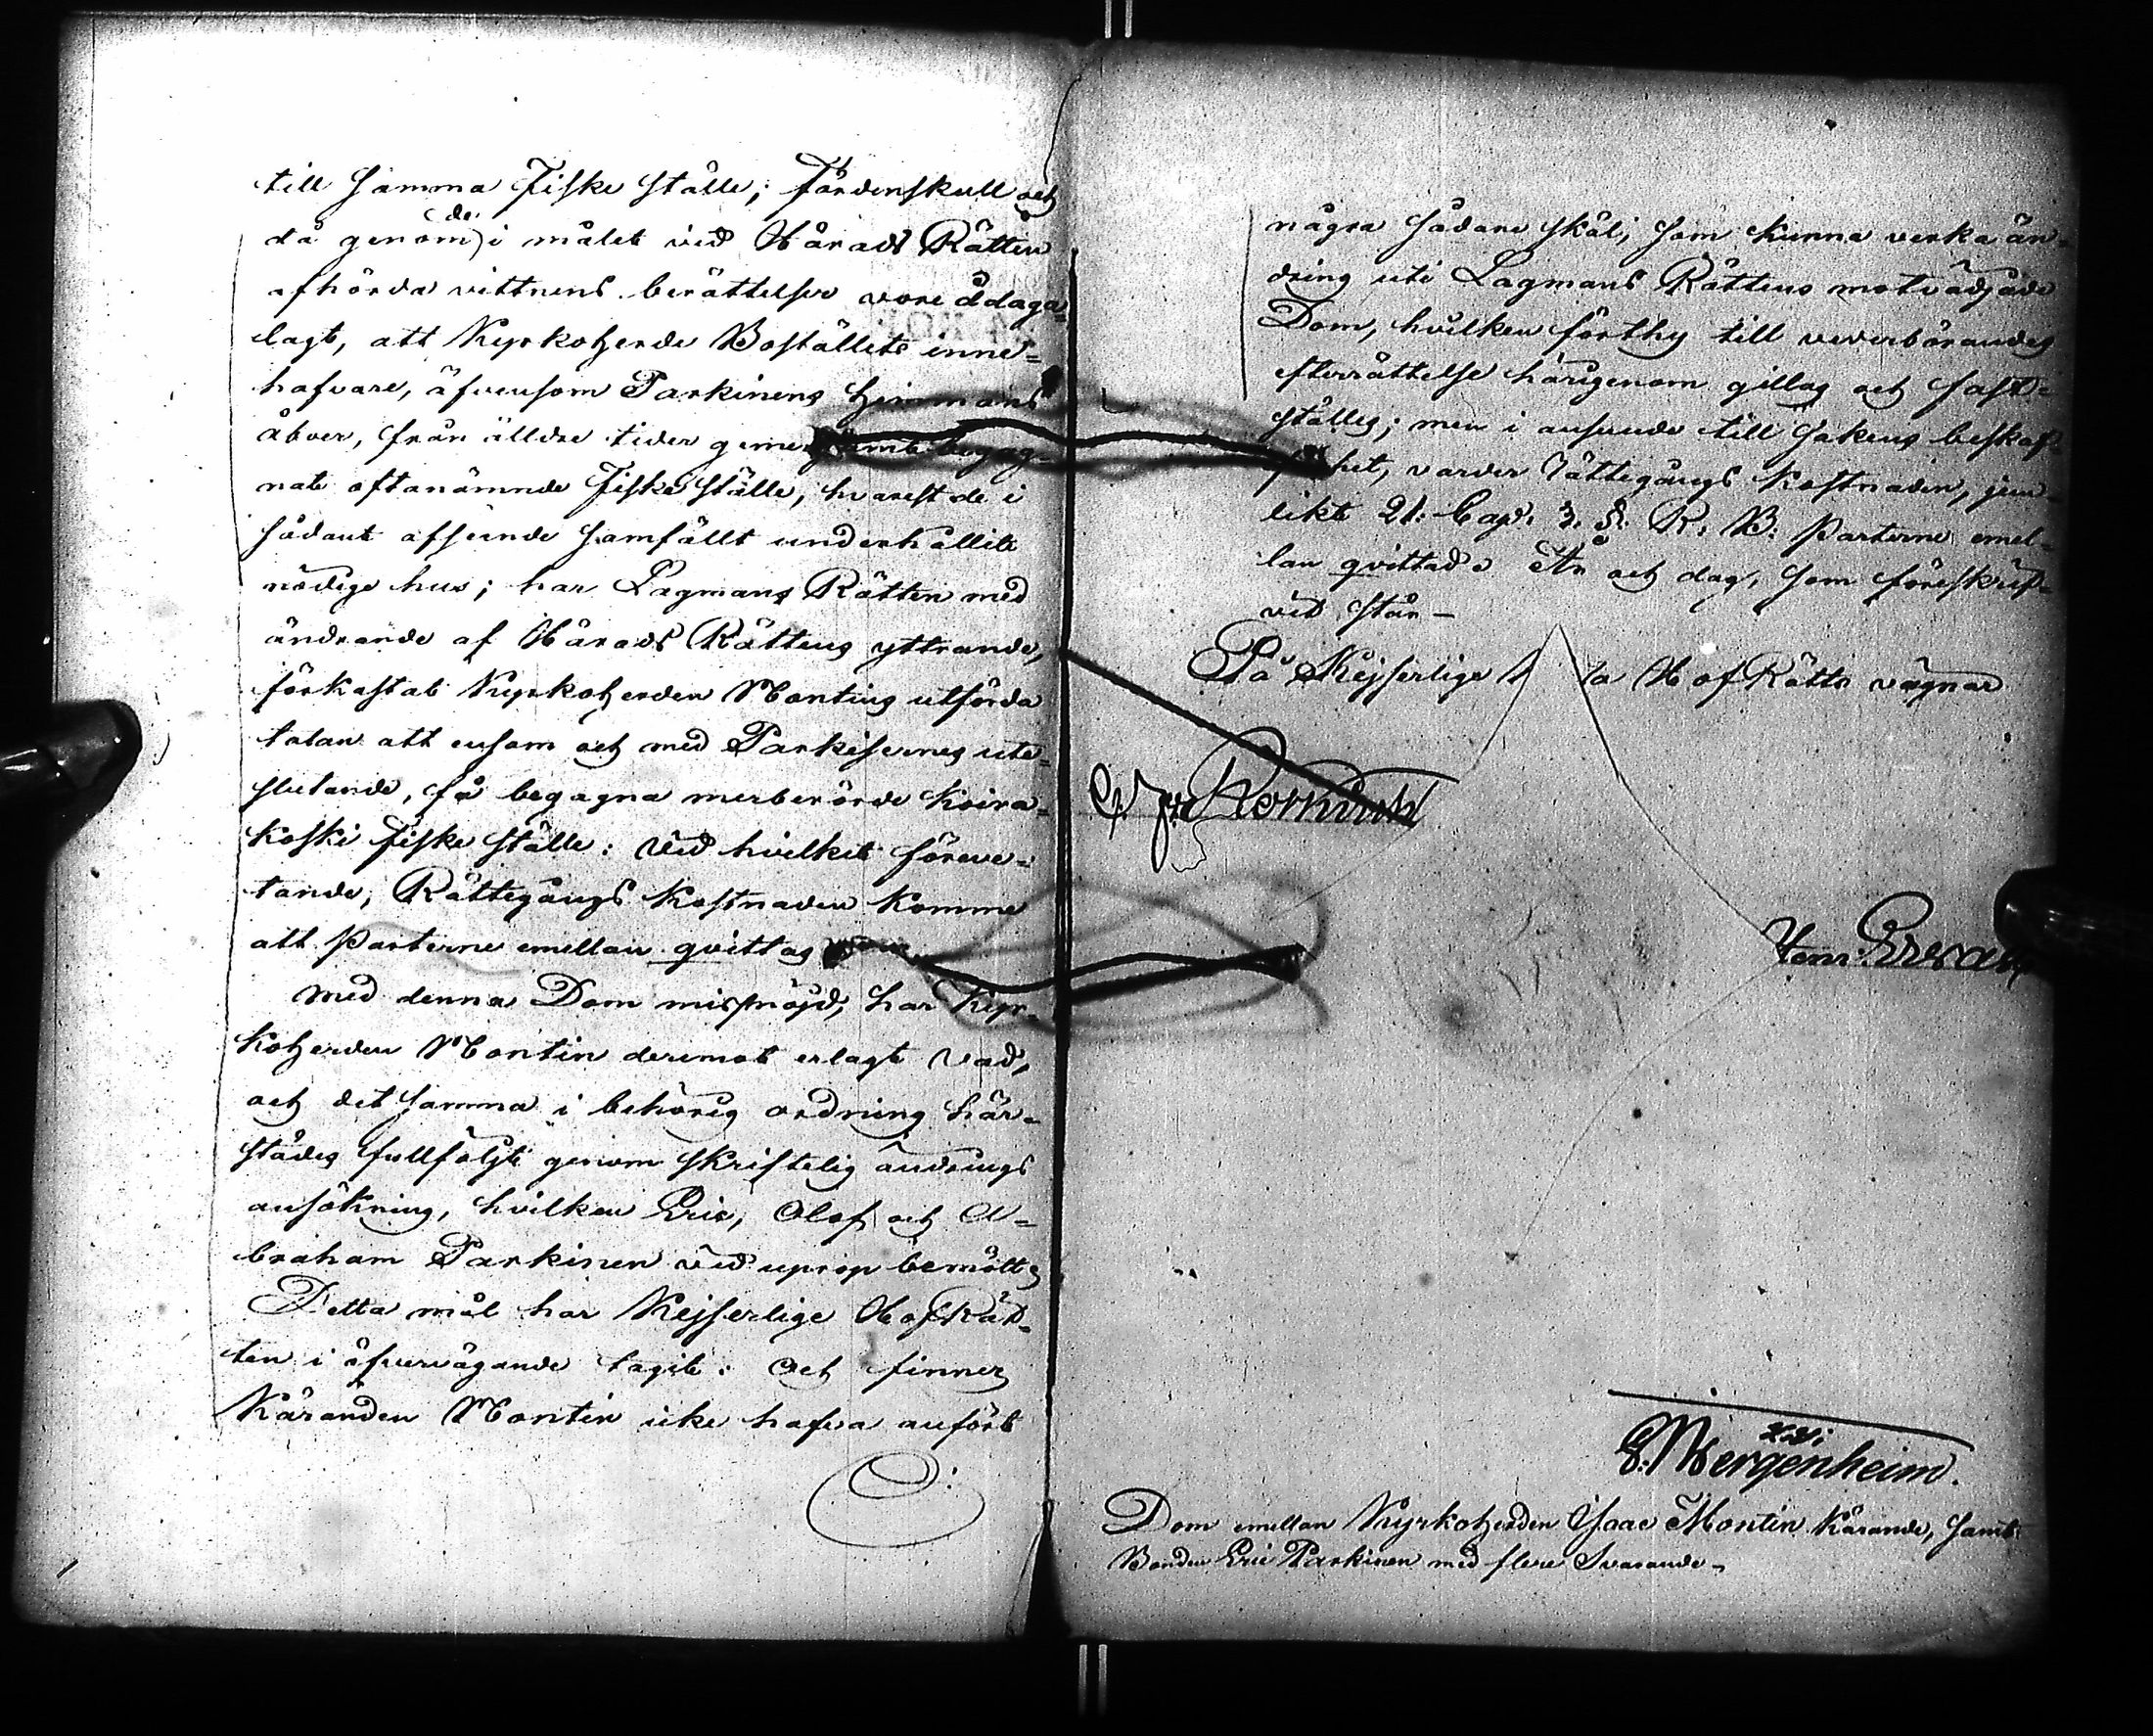 till samma Fiske ställe; Fördenskull och
då genom de i målet vid Härads Rätten
afhörda vittnens berättelser vore ådaga-
lagt, att Kyrkoherde Boställets inne-
hafvare, äfvensom Parkinens Hemmans
åboer, från älldre tider gemensamt begag-
nate oftanämnde Fiske ställe, hvarest de i
sådant afseende samfällt underhållit
nödige hus; har Lagmans Rätten med
ändrande af Härads Rättens yttrande,
förkastat Kyrkoherden Montins utförda
talan att ensam och med Parkisernes ute-
slutande, få begagna merberörde Koira-
koski Fiske ställe: Vid hvilket föreve-
tande, Rättegångs Kostnaden komme
att Parterne emellan qvittas
Med denna Dom missnöjd, har Kyr-
koherden Montin deremot erlagt Vad,
och det samma i behörig ordning här-
städes fullföljt genom skriftelig ändrings
ansökning, hvilken Eric, Olof och A-
braham Parkinen vid uprop bemött
Detta mål har Kejserlige Hof Rät-
ten i öfvervägande tagit: Och finner
Käranden Montin icke hafva anfört
några sådane skäl, som kunna verka än-
dring uti Lagmans Rättens motvädjade
Dom, hvilken förthy till vederbörandes
efterrättelse härigenom gillas och fast-
ställes; men i anseende till sakens beskaf-
fenhet, varder Rättegångs Kostnaden, jem-
likt 21: Cap: 3. §. R: B: Parterne emel-
lan qvittad. År och dag, som föreskrif-
vit står -
På Kejserlige Hof Rätts vägnar
Henr:
E. Wergenheim.
Dom emellan Kyrkoherden Isaac Montin Kärande, samt
Bonden Eric Parkinen med flere Svarande.